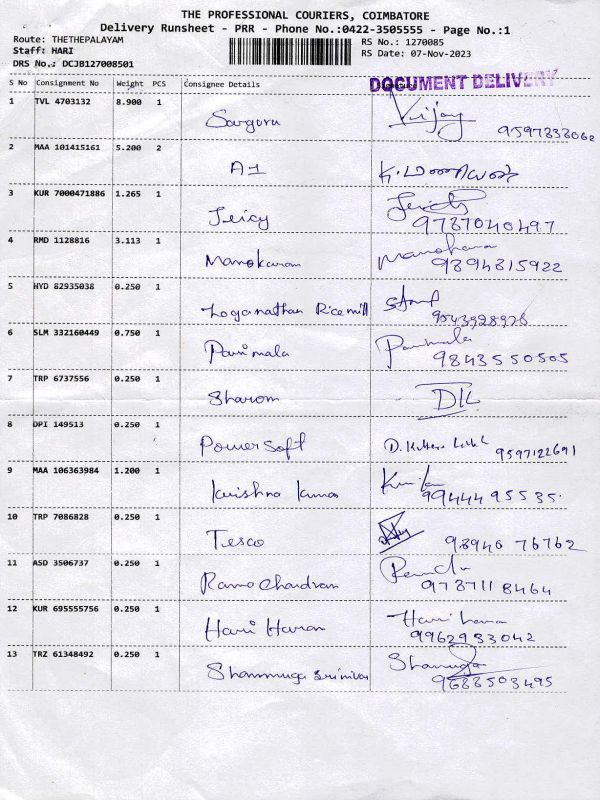 THE PROFESSIONAL COURIERS, COIMBATORE
Delivery Runsheet - PRR - Phone No.:0422-3505555 - Page No.:1
Route: THETHEPALAYAM
Staff: HARI
DRS No.: DCJB127008501
RS No.: 1270085
RS Date: 07-Nov-2023
S No Consignment No Weight PCS Consignee Details
DOCUMENT DELIVERY
1 TVL 4703132 8.900 1
Vijay
9597333062
2 MAA 101415161 5.200 2
A1
3 KUR 7000471886 1.265 1
Jeicy
9787040497
4 RMD 1128816 3.113 1
Manokaran Manohara
9894815922
5 HYD 82935038 0.250 1
Loganathan Ricemill
9543928978
6 SLM 332160449 0.750 1
Parimala Parimala
9843550505
7 TRP 6737556 0.250 1
Sharom
8 DPI 149513 0.250 1
Powersoft
9597122691
9 MAA 106363984 1.200 1
Krishna Kumar
9944495535
10 TRP 7086828 0.250 1
Tesco 98940 76762
11 ASD 3506737 0.250 1
Rama Chandran
9787118464
12 KUR 695555756 0.250 1
Hari Haran Harihara
9962983042
13 TRZ 61348492 0.250 1
Shanmuga Srinivas
9688503495